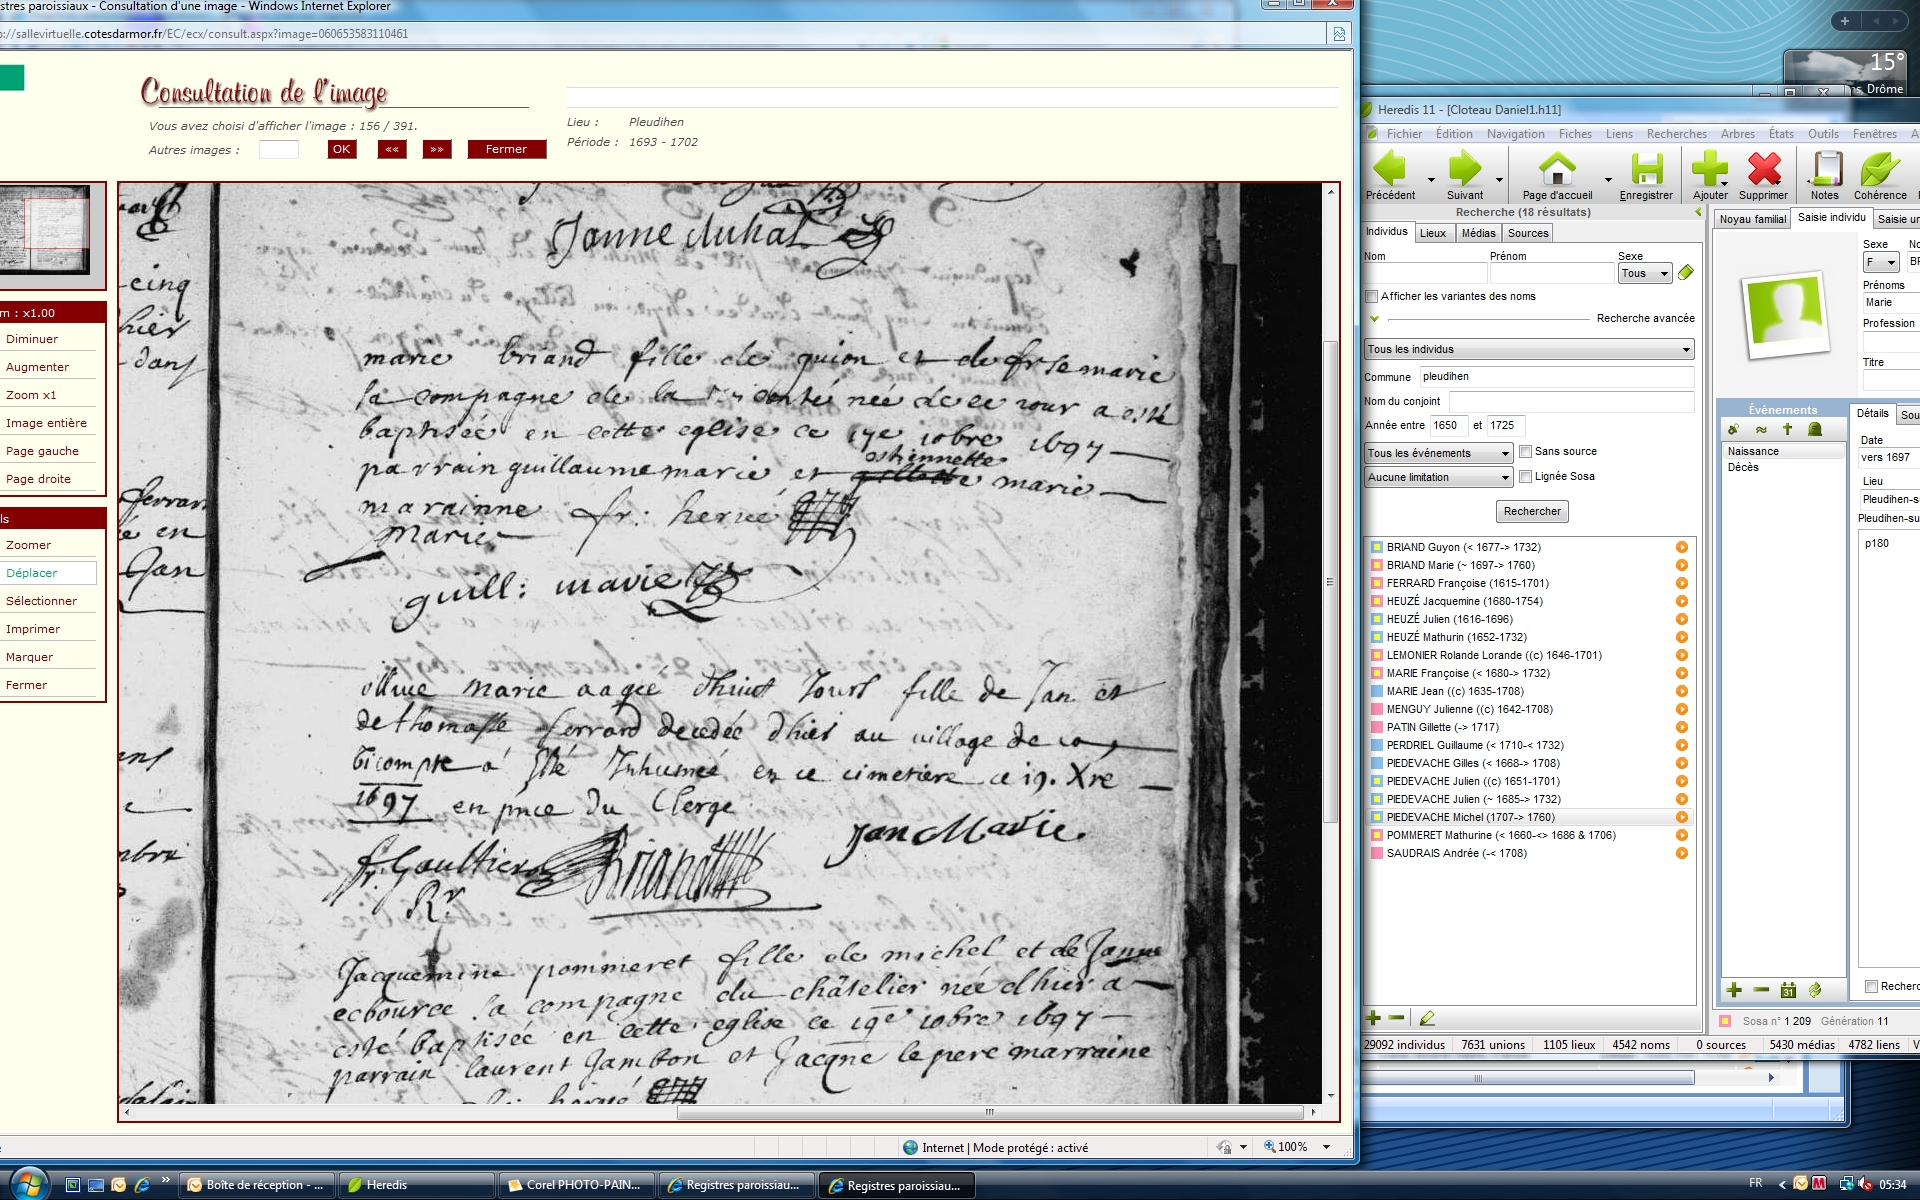 stres paroissiaux - Consultation d'une image - Windows Internet Explorer
p://sallevirtuelle.cotesdarmor.fr/EC/ecx/consult.aspx?image=060653583110461
Consultation de l'image
Vous avez choisi d'afficher l'image : 156 / 391.
Autres images :
OK
««
»»
Fermer
Lieu : Pleudihen
Période : 1693 - 1702
m : x1.00
Diminuer
Augmenter
Zoom x1
Image entière
Page gauche
Page droite
ls
Zoomer
Déplacer
Sélectionner
Imprimer
Marquer
Fermer
cinq
hier
dans
ferran
é en
Jan
Janne duhal
marie briand fille de guion et de frse marie
sa compagne de la née de ce jour a esté
baptisée en cette eglise ce 17e 10bre 1697
parrain guillaume marie et estiennette marie
marainne fr: hervé
Marie
guill: marie
ollive marie aagée d'huict jours fille de Jan et
de thomasse ferrard decedée d'hier au village de la
bicompte a esté Inhumée en ce cimetiere ce 19. Xre
1697 en pnce du Clerge
Jan Marie
fr. Gaultier Briand
Rr
Jacquemine pommeret fille de michel et de Janne
ecbource sa compagne du châtelier née d'hier a
esté baptisée en cette eglise ce 19e 10bre 1697
parrain laurent Jambon et Jacqne le pere marraine
hervé
15°
Drôme
Heredis 11 - [Cloteau Daniel1.h11]
Fichier Édition Navigation Fiches Liens Recherches Arbres États Outils Fenêtres A
Précédent Suivant Page d'accueil Enregistrer Ajouter Supprimer Notes Cohérence
Recherche (18 résultats)
Individus Lieux Médias Sources
Nom Prénom Sexe
Tous
Afficher les variantes des noms
Recherche avancée
Tous les individus
Commune pleudihen
Nom du conjoint
Année entre 1650 et 1725
Tous les événements Sans source
Aucune limitation Lignée Sosa
Rechercher
BRIAND Guyon (< 1677-> 1732)
BRIAND Marie (~ 1697-> 1760)
FERRARD Françoise (1615-1701)
HEUZÉ Jacquemine (1680-1754)
HEUZÉ Julien (1616-1696)
HEUZÉ Mathurin (1652-1732)
LEMONIER Rolande Lorande ((c) 1646-1701)
MARIE Françoise (< 1680-> 1732)
MARIE Jean ((c) 1635-1708)
MENGUY Julienne ((c) 1642-1708)
PATIN Gillette (-> 1717)
PERDRIEL Guillaume (< 1710-< 1732)
PIEDEVACHE Gilles (< 1668-> 1708)
PIEDEVACHE Julien ((c) 1651-1701)
PIEDEVACHE Julien (~ 1685-> 1732)
PIEDEVACHE Michel (1707-> 1760)
POMMERET Mathurine (< 1660-<> 1686 & 1706)
SAUDRAIS Andrée (-< 1708)
Noyau familial Saisie individu Saisie un
Sexe No
F BR
Prénoms
Marie
Profession
Titre
Événements
Naissance
Décès
Détails Sou
Date
vers 1697
Lieu
Pleudihen-su
Pleudihen-su
p180
31
Recherc
Sosa n° 1 209 Génération 11
29092 individus 7631 unions 1105 lieux 4542 noms 0 sources 5430 médias 4782 liens V
Internet | Mode protégé : activé
100%
Boîte de réception - ...
Heredis
Corel PHOTO-PAIN...
Registres paroissiau...
Registres paroissiau...
FR
05:34